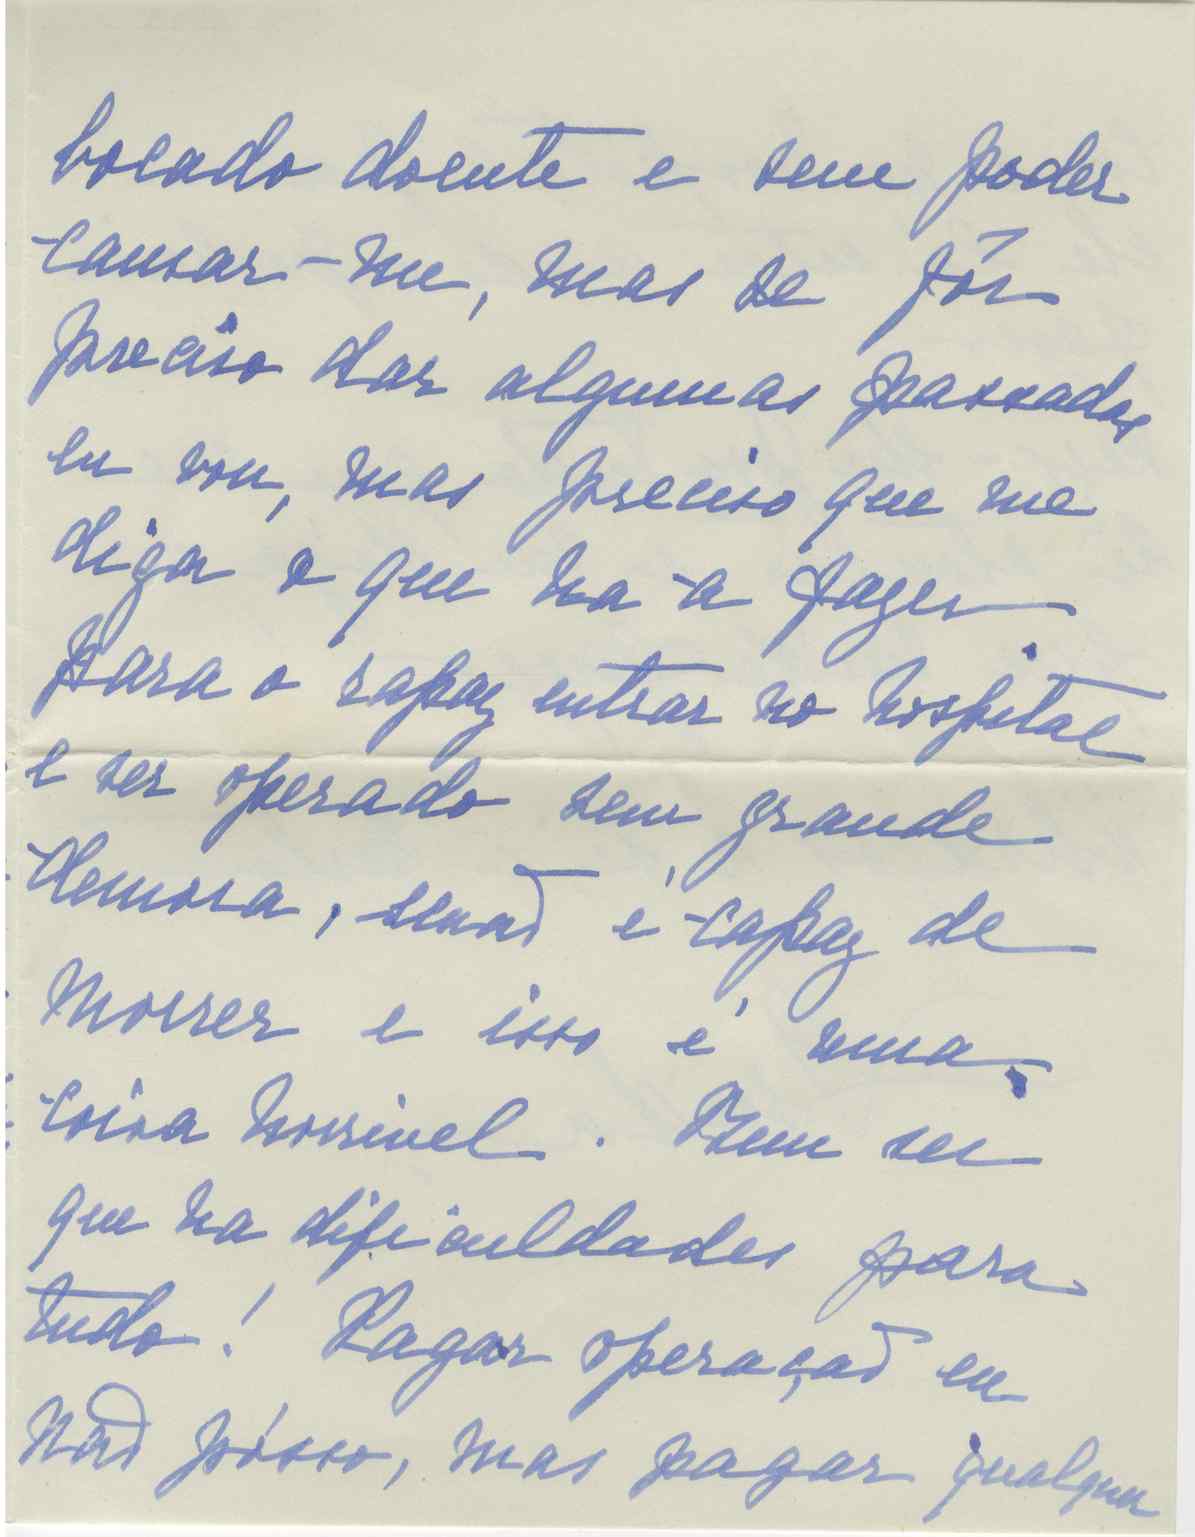 bocado doente e sem poder
cansar-me, mas se fôr
preciso dar algumas passadas
eu vou, mas preciso que me
diga o que ha-a fazer
para o rapaz entrar no hospital
e ser operado sem grande
demora, senaõ é capaz de
morrer e isso é uma
coisa horrivel. Bem sei
que ha dificuldades para
tudo! Pagar operaçaõ eu
naõ pósso, mas pagar qualquer